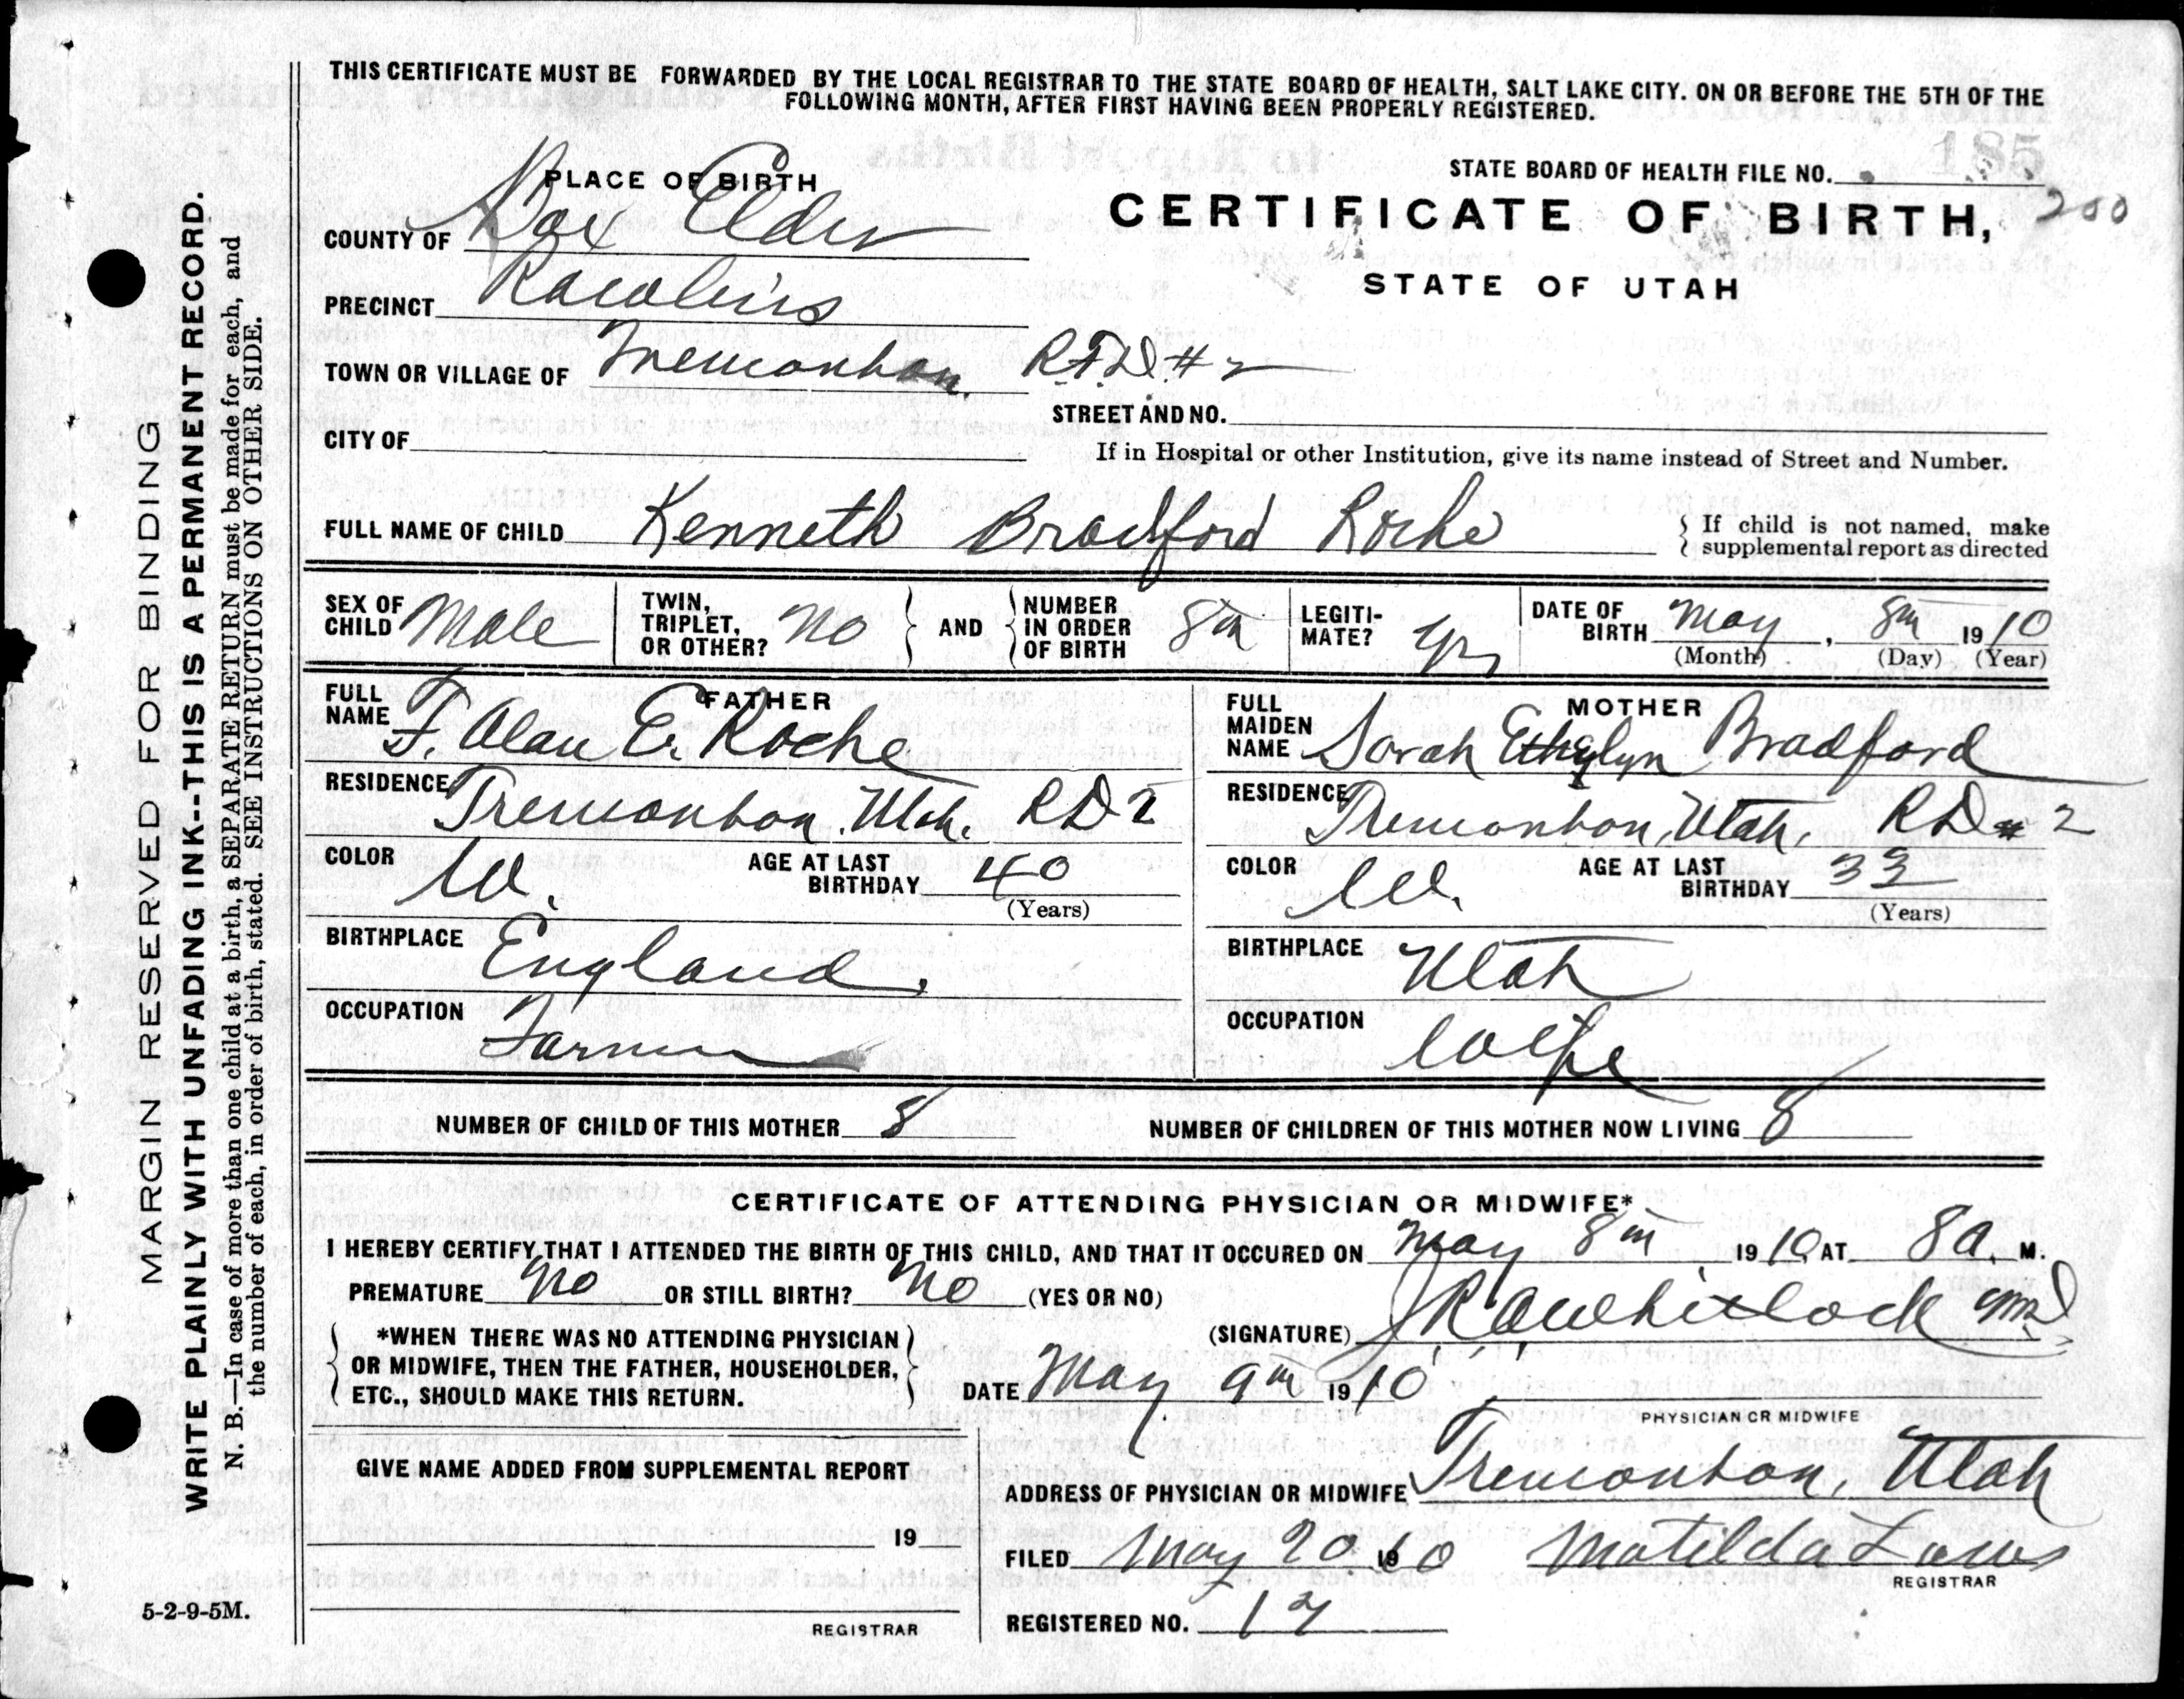 THIS CERTIFICATE MUST BE FORWARDED BY THE LOCAL REGISTRAR TO THE STATE BOARD OF HEALTH, SALT LAKE CITY. ON OR BEFORE THE 5TH OF THE
FOLLOWING MONTH, AFTER FIRST HAVING BEEN PROPERLY REGISTERED.
185
PLACE OF BIRTH
STATE BOARD OF HEALTH FILE NO.
COUNTY OF Box Elder
CERTIFICATE OF BIRTH, 200
STATE OF UTAH
PRECINCT Rawlins
TOWN OR VILLAGE OF Tremonton. R.F.D. # 2
STREET AND NO.
CITY OF
If in Hospital or other Institution, give its name instead of Street and Number.
FULL NAME OF CHILD Kenneth Bradford Roche
If child is not named, make
supplemental report as directed
SEX OF CHILD Male
TWIN, TRIPLET, OR OTHER? No
AND
NUMBER IN ORDER OF BIRTH 8th
LEGITI-MATE? Yes
DATE OF BIRTH May, 8th 1910
(Month) (Day) (Year)
FATHER
FULL NAME F. Alan E. Roche
MOTHER
FULL MAIDEN NAME Sarah Ethelyn Bradford
RESIDENCE Tremonton. Utah. RD 2
RESIDENCE Tremonton, Utah. RD # 2
COLOR W. AGE AT LAST BIRTHDAY 40
(Years)
COLOR W. AGE AT LAST BIRTHDAY 33
(Years)
BIRTHPLACE England.
BIRTHPLACE Utah
OCCUPATION Farmer
OCCUPATION Wife
NUMBER OF CHILD OF THIS MOTHER 8
NUMBER OF CHILDREN OF THIS MOTHER NOW LIVING 8
CERTIFICATE OF ATTENDING PHYSICIAN OR MIDWIFE*
I HEREBY CERTIFY THAT I ATTENDED THE BIRTH OF THIS CHILD, AND THAT IT OCCURED ON May 8th, 1910 AT 8 a. M.
PREMATURE No OR STILL BIRTH? No (YES OR NO)
*WHEN THERE WAS NO ATTENDING PHYSICIAN
OR MIDWIFE, THEN THE FATHER, HOUSEHOLDER,
ETC., SHOULD MAKE THIS RETURN.
(SIGNATURE) Whitlock MD
DATE May 9th 1910
PHYSICIAN OR MIDWIFE
GIVE NAME ADDED FROM SUPPLEMENTAL REPORT
19
REGISTRAR
ADDRESS OF PHYSICIAN OR MIDWIFE Tremonton, Utah
FILED May 20 1910 Matilda Laws
REGISTRAR
REGISTERED NO. 17
MARGIN RESERVED FOR BINDING
WRITE PLAINLY WITH UNFADING INK--THIS IS A PERMANENT RECORD.
N. B.—In case of more than one child at a birth, a SEPARATE RETURN must be made for each, and
the number of each, in order of birth, stated. SEE INSTRUCTIONS ON OTHER SIDE.
5-2-9-5M.